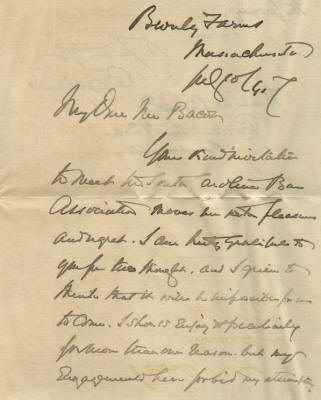 Beverly Farms
Massachusetts
July
My Dear Mr Bacon
Your kind invitation
to meet the South Carolina Bar
Association moves me with pleasure
and regret. I am truly grateful to
you for the thought, and I grieve to
think that it will be impossible for me
to come. I should enjoy it peculiarly
for more than one reason. but my
engagements here forbid my attempting